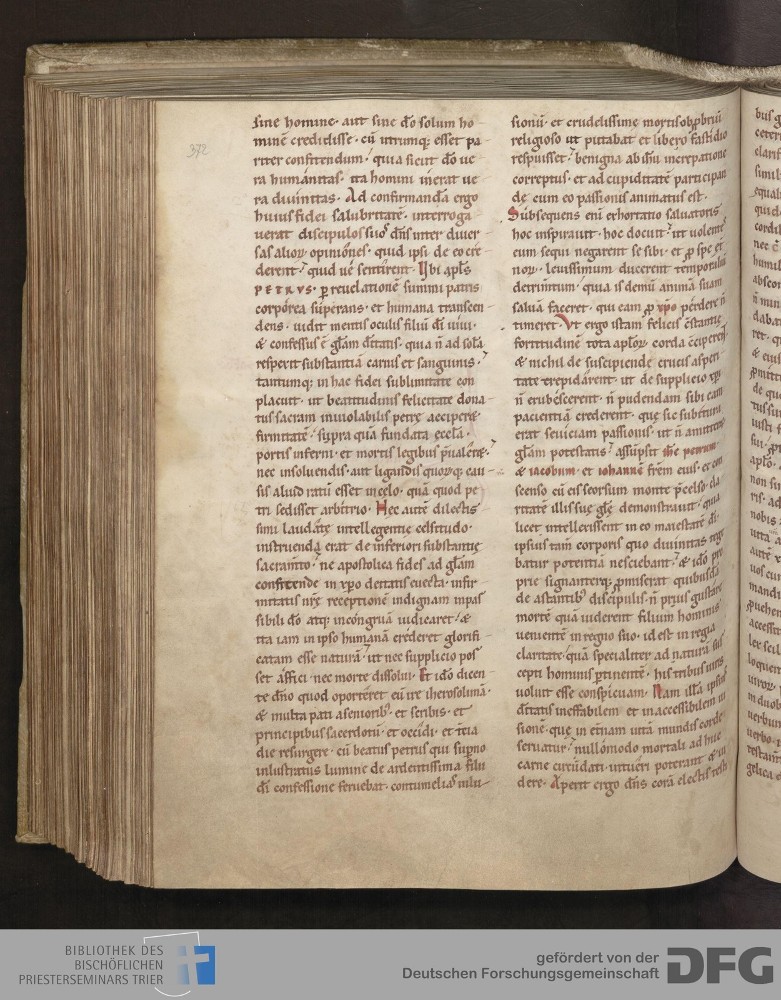 372
sine homine· aut sine dō solum ho
minē credidisse· cū utrumq; esset pa
riter confitendum· quia sicut dō ue
ra humanitas· ita homini inerat ue
ra diuinitas· Ad confirmandā ergo
huius fidei salubritatē· interroga
uerat discipulos suos dn̄s inter diuer
sas alioꝝ opiniones· quid ipsi de eo cre
derent· quid ue sentirent· Ubi apl̄s
PETRVS· ꝑ reuelationē summi patris
corporea superans· et humana transcen
dens· uidit mentis oculis filiū dī uiui·
& confessus ē glām dēitatis· quia n̄ ad solā
respexit substantiā carnis et sanguinis·
tantumq; in hac fidei sublimitate con
placuit· ut beatitudinis felicitate dona
tus sacram inuiolabilis petrę acciperet
firmitatē· supra quā fundata ęcclā·
portis inferni· et mortis legibus p̄ualeret·
nec in soluendis· aut ligandis quoꝝcq; cau
sis aliud ratū esset in celo· quā quod pe
tri sedisset arbitrio· Hec autē dilectis
simi laudatę intellegentię celsitudo·
instruenda erat de inferiori substantię
sacramto· ne apostolica fides ad glām
confitende in xp̄o deitatis euecta· infir
mitatis nr̄ę receptionē indignam inpas
sibili dō atq; incongruā iudicaret· &
ita iam in ipso humanā crederet glorifi
catam esse naturā· ut nec supplicio pos
set affici· nec morte dissolui· Et idō dicen
te dn̄o quod oporteret eū ire iherosolimā·
& multa pati a senioribꝰ· et scribis· et
principibus sacerdotū· et occidi· et t̄cia
die resurgere· cū beatus petrus qui sup̄no
inlustratus lumine de ardentissima filii
dī confessione feruebat· contumelias inlu
sionū· et crudelissimę mortis obꝓbriū
religioso ut putabat et libero fastidio
respuisset· benigna ab ih̄u increpatione
correptus· et ad cupiditatē participan
dę cum eo passionis animatus est·
Subsequens enī exhortatio saluatoris
hoc inspirauit· hoc docuit· ut uolentes
eum sequi negarent se sibi· et ꝓ spe et
noꝝ· leuissimum ducerent temporaliū
detrimtum· quia is demū animā suam
saluā faceret· qui eam ꝓ xp̄o perdere n̄
timeret· Vt ergo istam felicis cstantię
fortitudinē tota apl̄oꝝ corda cciperent
& nichil de suscipiende crucis asperi
tate trepidarent· ut de supplicio xp̄i
n̄ erubescerent· n̄ pudendam sibi eam
pacientiā crederent· quę sic subitura
erat seuiciam passionis· ut n̄ amitteret
glām potestatis· assūpsit ih̄c petrum
& iacobum· et iohannē frēm eius· et con
scenso cū eis seorsum monte p̄celso· cla
ritatē illis suę glę demonstrauit· quia
licet intellexissent in eo maiestatē dī·
ipsius tam̄ corporis quo diuinitas tege
batur potentiā nesciebant· & idō pro
prie signanterq; ꝓmiserat quibusdā
de astantibꝰ discipulis· n̄ prius gustare
mortē quā uiderent filium hominis
uenientē in regno suo· id est in regia
claritate· quā specialiter ad naturā sus
cepti hominis ꝑtinentē· his tribus uiris
uoluit esse conspicuam· Nam illā ipsius
dēitatis ineffabilem et inaccessibilem ui
sionē· que in et̄nam uitā mundis corde
seruatur· nullomodo mortali adhuc
carne circūdati· intueri poterant & ui
dere· Aperit ergo dn̄s corā electis testi
BIBLIOTHEK DES
BISCHÖFLICHEN
PRIESTERSEMINARS TRIER
gefördert von der
Deutschen Forschungsgemeinschaft
DFG